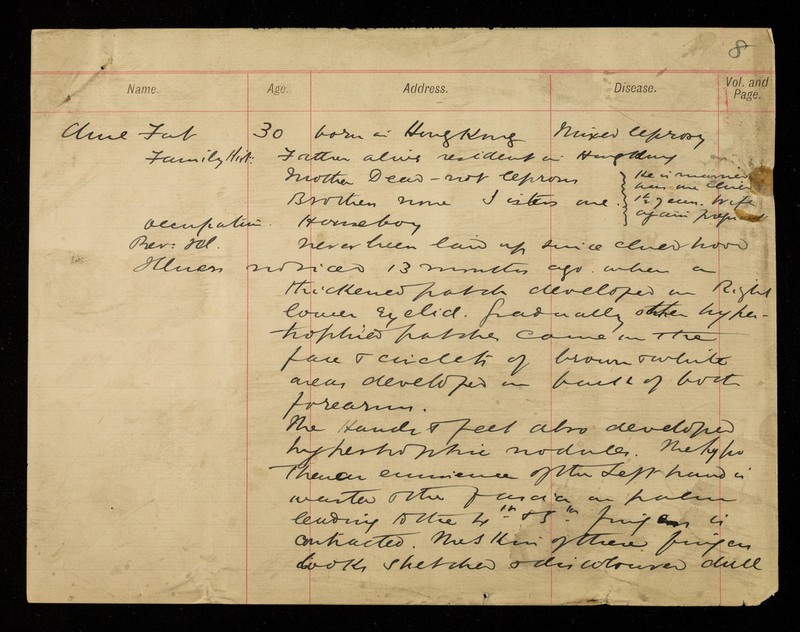 8
Name. Age. Address. Disease. Vol. and Page.
Fat 30 born in Hong Kong Mixed leprosy
Family Hist: Father alive resident in Hong Kong
Mother Dead - not leprous He is married
Brothers none Sisters one. has one child
1½ years. Wife
again
occupation. Houseboy
Prev: Ill. never been laid up since childhood
Illness noticed 13 months ago. when a
thickened patch developed on Right
lower Eyelid. Gradually other hyper-
trophied patches came on the
face & circlets of brown & white
areas developed on back of both
forearms.
The Hands & feet also developed
hypertrophic nodules. The hypo
Thenar eminence of the Left hand is
wasted & the fascia on palm
leading to the 4th & 5th fingers is
contracted. The Skin of these fingers
looks stretched & discoloured dull